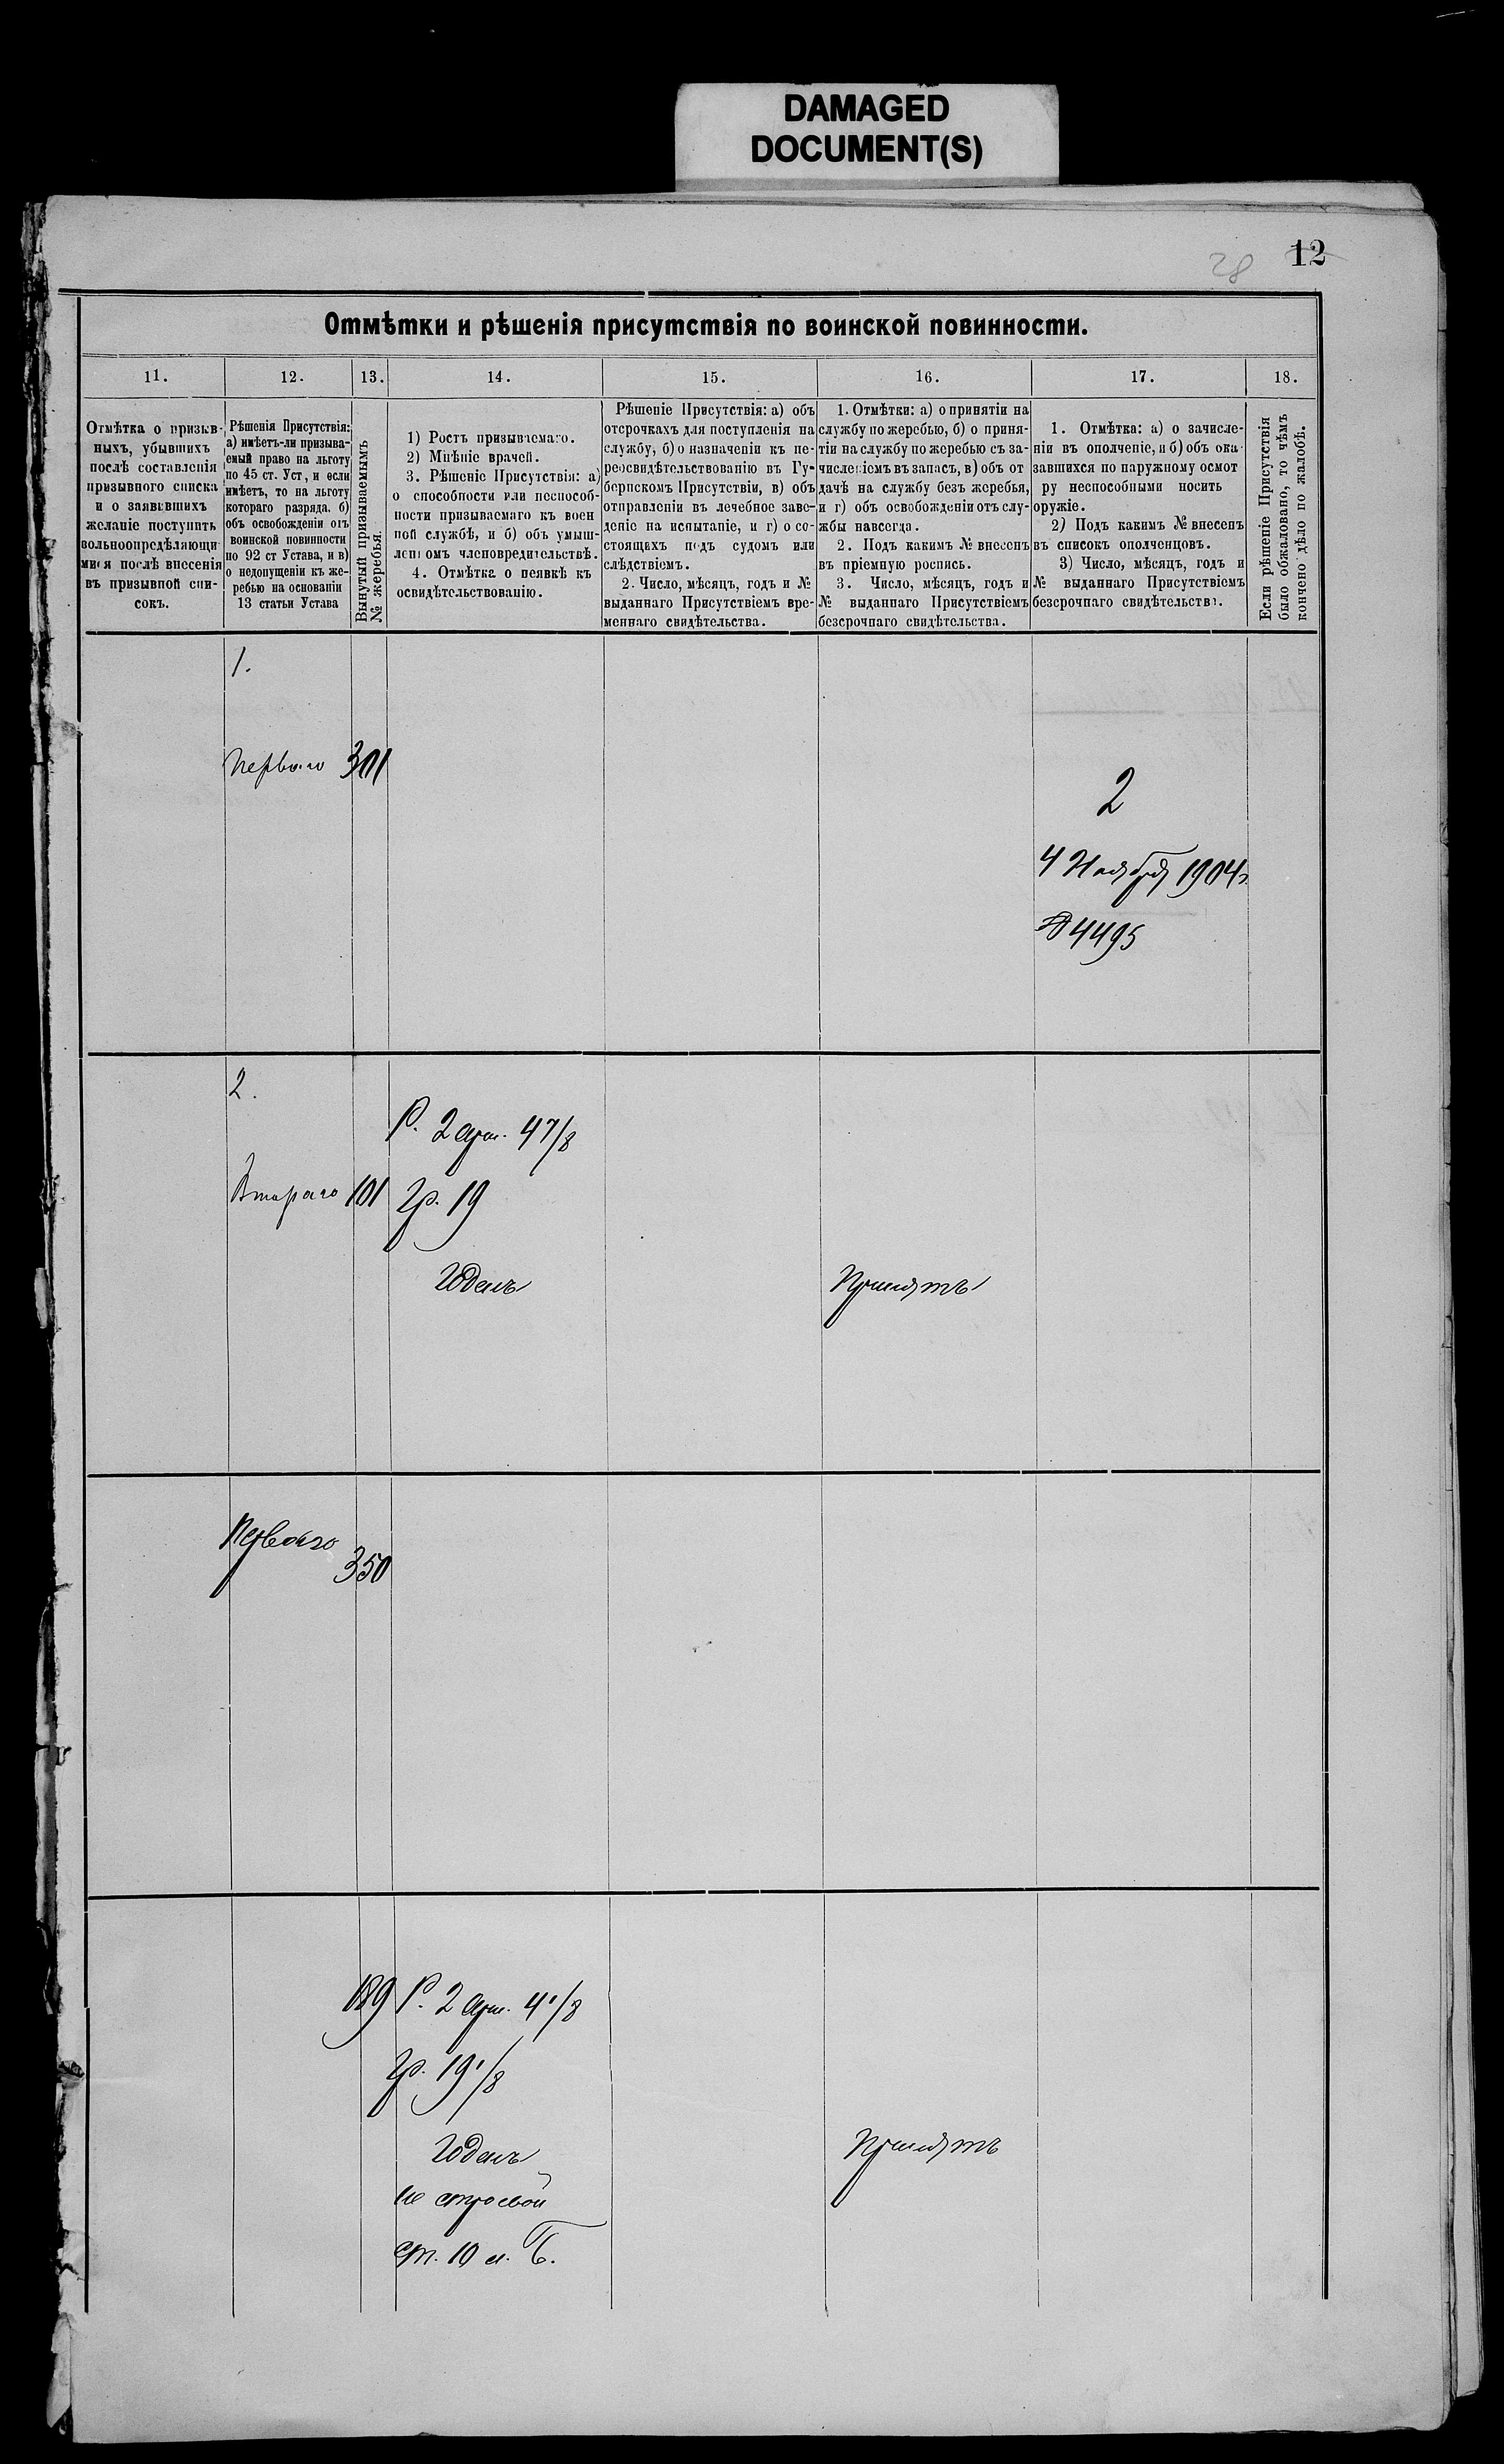 DAMAGED
DOCUMENT(S)
28 12
Отмѣтки и рѣшенія присутствія по воинской повинности.
11. 12. 13. 14. 15. 16. 17. 18.
Отмѣтка о призыв-
ныхъ, убывшихъ
послѣ составленія
призывного списка
и о заявившихъ
желаніе поступить
вольноопредѣляющи-
мися послѣ внесенія
въ призывной спи-
сокъ.
Рѣшенія Присутствія:
а) имѣетъ-ли призыва-
емый право на льготу
по 45 ст. Уст, и если
имѣетъ, то на льготу
котораго разряда. б)
объ освобожденіи отъ
воинской повинности
по 92 ст Устава, и в)
о недопущеніи къ же-
ребью на основаніи
13 статьи Устава
Вынутый призываемымъ
№ жеребья.
1) Ростъ призываемаго.
2) Мнѣніе врачей.
3. Рѣшеніе Присутствія: а)
о способности или неспособ-
ности призываемаго къ воен
ной службѣ, и б) объ умыш-
ленномъ членовредительствѣ.
4. Отмѣтка о неявкѣ къ
освидѣтельствованію.
Рѣшеніе Присутствія: а) объ
отсрочкахъ для поступленія на
службу, б) о назначеніи къ пе-
реосвидѣтельствованію въ Гу-
бернскомъ Присутствіи, в) объ
отправленіи въ лечебное заве-
деніе на испытаніе, и г) о со-
стоящехъ подъ судомъ или
слѣдствіемъ.
2. Число, мѣсяцъ, годъ и №
выданнаго Присутствіемъ вре-
меннаго свидѣтельства.
1. Отмѣтки: а) о принятіи на
службу по жеребью, б) о приня-
тіи на службу по жеребью съ за-
численіемъ въ запасъ, в) объ от
дачѣ на службу безъ жеребья,
и г) объ освобожденіи отъ слу-
жбы навсегда.
2. Подъ какимъ № внесенъ
въ пріемную роспись.
3. Число, мѣсяцъ, годъ и
№ выданнаго Присутствіемъ
безсрочнаго свидѣтельства.
1. Отмѣтка: а) о зачисле-
ніи въ ополченіе, и б) объ ока-
завшихся по наружному осмот
ру неспособными носить
оружіе.
2) Подъ какимъ № внесенъ
въ списокъ ополченцовъ.
3) Число, мѣсяцъ, годъ и
№ выданнаго Присутствіемъ
безсрочнаго свидѣтельства.
Если рѣшеніе Присутствія
было обжаловано, то чѣмъ
кончено дѣло по жалобѣ.
1.
Перваго 301
2
4 Ноября 1904 г.
№ 4495
2.
Р. 2 арш. 4 7/8
Втораго 101 Гр. 19
Годенъ Принятъ
Перваго
350
189 Р. 2 арш. 4 1/8
Гр. 19 1/8
Годенъ Принятъ
не строевой
ст. 10 л. Б.